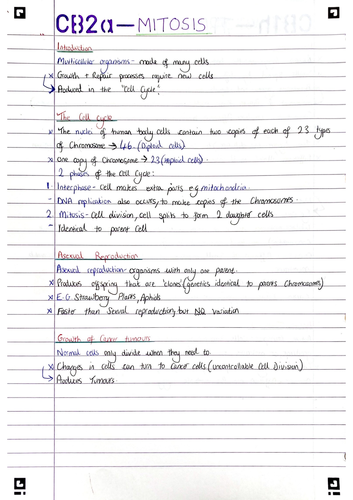 CB2a - MITOSIS
Introduction
Multicellular organisms - made of many cells
x Growth + Repair processes require new cells
↳ Produced in the "Cell Cycle".
The Cell Cycle
x The nuclei of human body cells contain two copies of each of 23 types
of Chromosome → 46. (Diploid cells)
x One copy of Chromosome → 23 (Haploid cells).
2 phases of the Cell Cycle:
1. Interphase - Cell makes extra parts e.g mitochondria
- DNA replication also occurs, to make copies of the Chromosomes.
2. Mitosis - Cell division, cell splits to form 2 daughter cells
- Identical to parent Cell
Asexual Reproduction
Asexual reproduction - organisms with only one parent.
x Produces offspring that are 'clones' (genetics identical to parents Chromosomes)
x E.G Strawberry Plants, Aphids
x Faster than Sexual reproduction, but NO variation
Growth of Cancer tumours
Normal cells only divide when they need to
x Changes in cells can turn to cancer cells (uncontrollable Cell Division)
↳ Produces Tumours